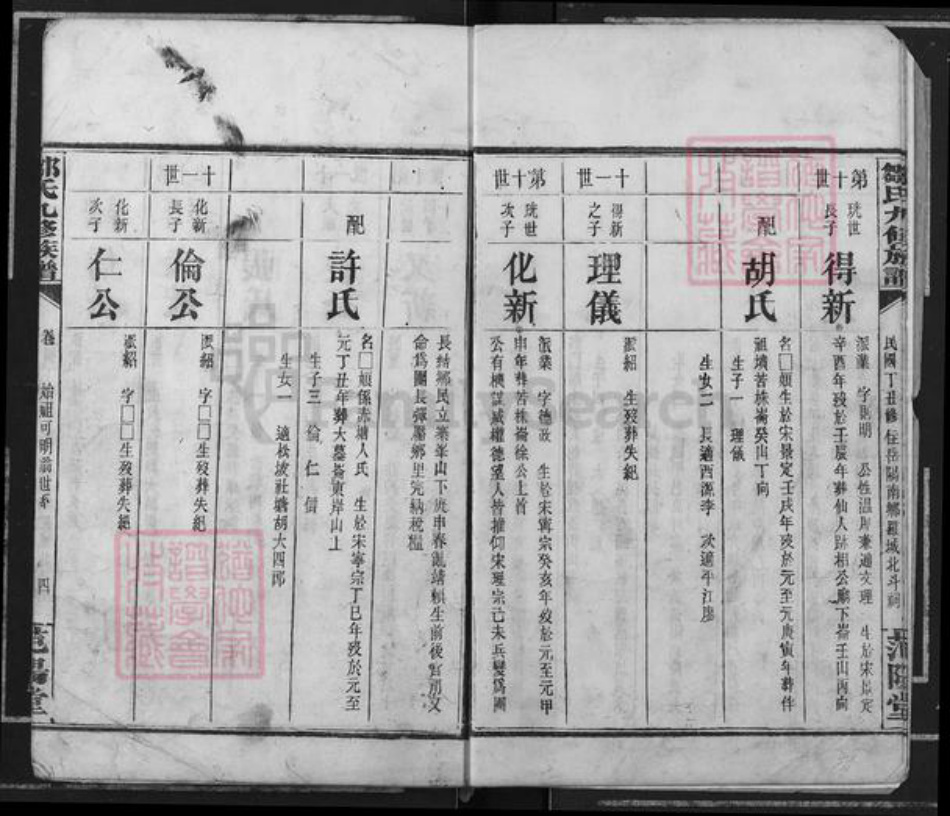 鄒氏九修族譜
民國丁丑修 住岳陽南鄉羅城北斗祠
范陽堂
第十世
珖世長子
得新
派業 字則明 公性溫厚兼通文理 生於宋景定
辛酉年歿於壬辰年葬仙人跡相公廟下崙壬山丙向
配
胡氏
名□娘生於宋景定壬戌年歿於元至元庚寅年葬伴
祖墳苦株崙癸山丁向
生子一 理儀
生女二 長適西源李 次適平江廖
十一世
得新之子
理儀
派紹 生歿葬失紀
第十世
珖世次子
化新
派業 字德政 生於宋寧宗癸亥年歿於元至元甲
申年葬苦株崙徐公上首
公有機謀威權德望人皆推仰宋理宗己未兵變爲團
長結鄉民立寨峯山下庚申春亂靖賴生前後官府又
命爲團長彈壓鄉里完納稅糧
配
許氏
名□娘係赤塘人氏 生於宋寧宗丁巳年歿於元至
元丁丑年葬大墓崙東岸山上
生子三 倫 仁 儐
生女一 適松坡社塘胡大四郎
十一世
化新長子
倫公
派紹 字□□生歿葬失紀
化新次子
仁公
派紹 字□□生歿葬失紀
鄒氏九修族譜
卷 始祖可明翁世系 四
范陽堂
FamilySearch